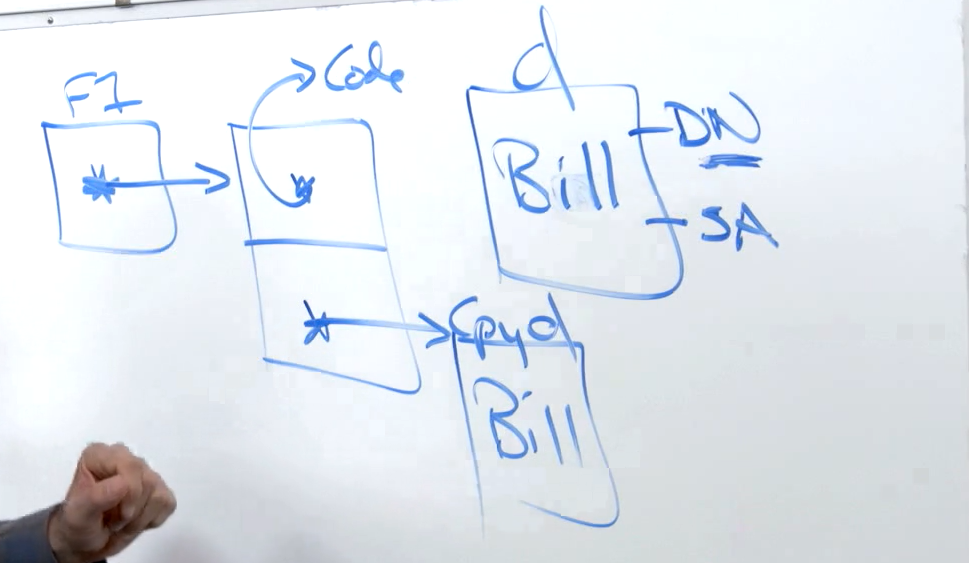 F1
Code
d
Bill
DN
SA
Cpy d
Bill